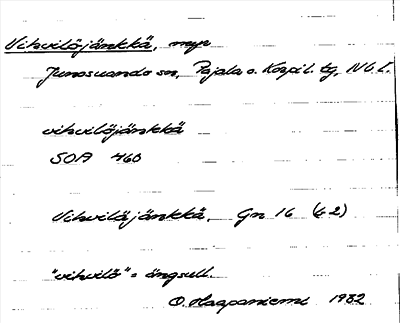 Vihvilöjänkkä, myr
Junosuando sn, Pajala o. Korpil. tg, Nb l.
vihvilöjänkkä
SOA 460
Vihviläjänkkä, Gn 16 (62)
"vihvilö" = ängsull.
O. Haapaniemi 1932